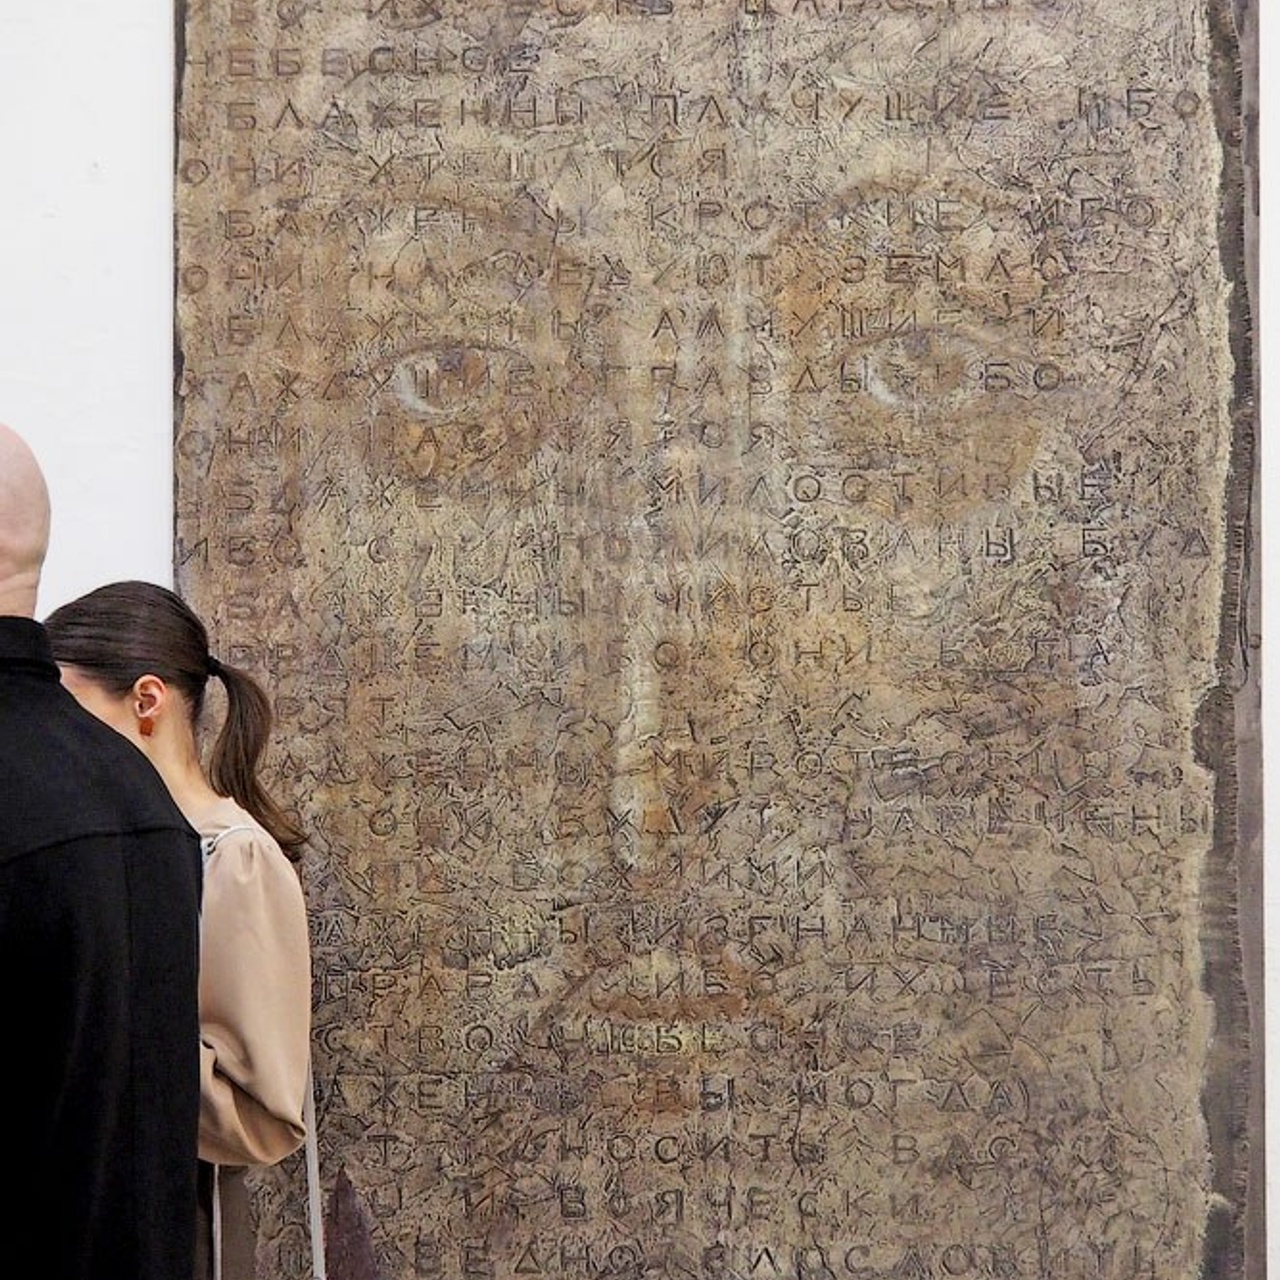 БО ИХ ЕСТЬ ЦАРСТВО
НЕБЕСНОЕ
БЛАЖЕННЫ ПЛАЧУЩИЕ ИБО
ОНИ УТЕШАТСЯ
БЛАЖЕННЫ КРОТКИЕ ИБО
ОНИ НАСЛЕДУЮТ ЗЕМЛЮ
БЛАЖЕННЫ АЛЧУЩИЕ И
ЖАЖДУЩИЕ ПРАВДЫ ИБО
ОНИ НАСЫТЯТСЯ
БЛАЖЕННЫ МИЛОСТИВЫЕ
ИБО ОНИ ПОМИЛОВАНЫ БУД
БЛАЖЕННЫ ЧИСТЫЕ
СЕРДЦЕМ ИБО ОНИ БОГА
УЗРЯТ
БЛАЖЕННЫ МИРОТВОРЦЫ
ОНИ БУДУТ НАРЕЧЕНЫ
БОЖИИМИ
АЖЕННЫ ИЗГНАННЫЕ
ПРАВДУ ИБО ИХ ЕСТЬ
СТВО НЕБЕСНОЕ
АЖЕННЫ ВЫ КОГДА
ПОНОСИТЬ ВАС
И ВСЯЧЕСКИ
ПРАВЕДНО ЗЛОСЛОВИТЬ